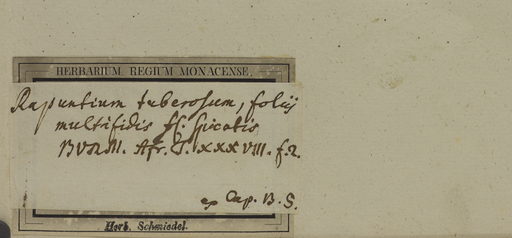 HERBARIUM REGIUM MONACENSE.
Rapuntium tuberosum, foliis
multifidis fl. spicatis
BURM. Afr. T. LXXXVIII. f. 2.
ex Cap. B. S.
Herb. Schmiedel.